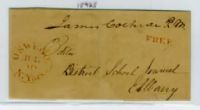 James Cochran P.M.
FREE
OSWEGO
JUL
10
N.Y.
Editor
District School Journal
Albany